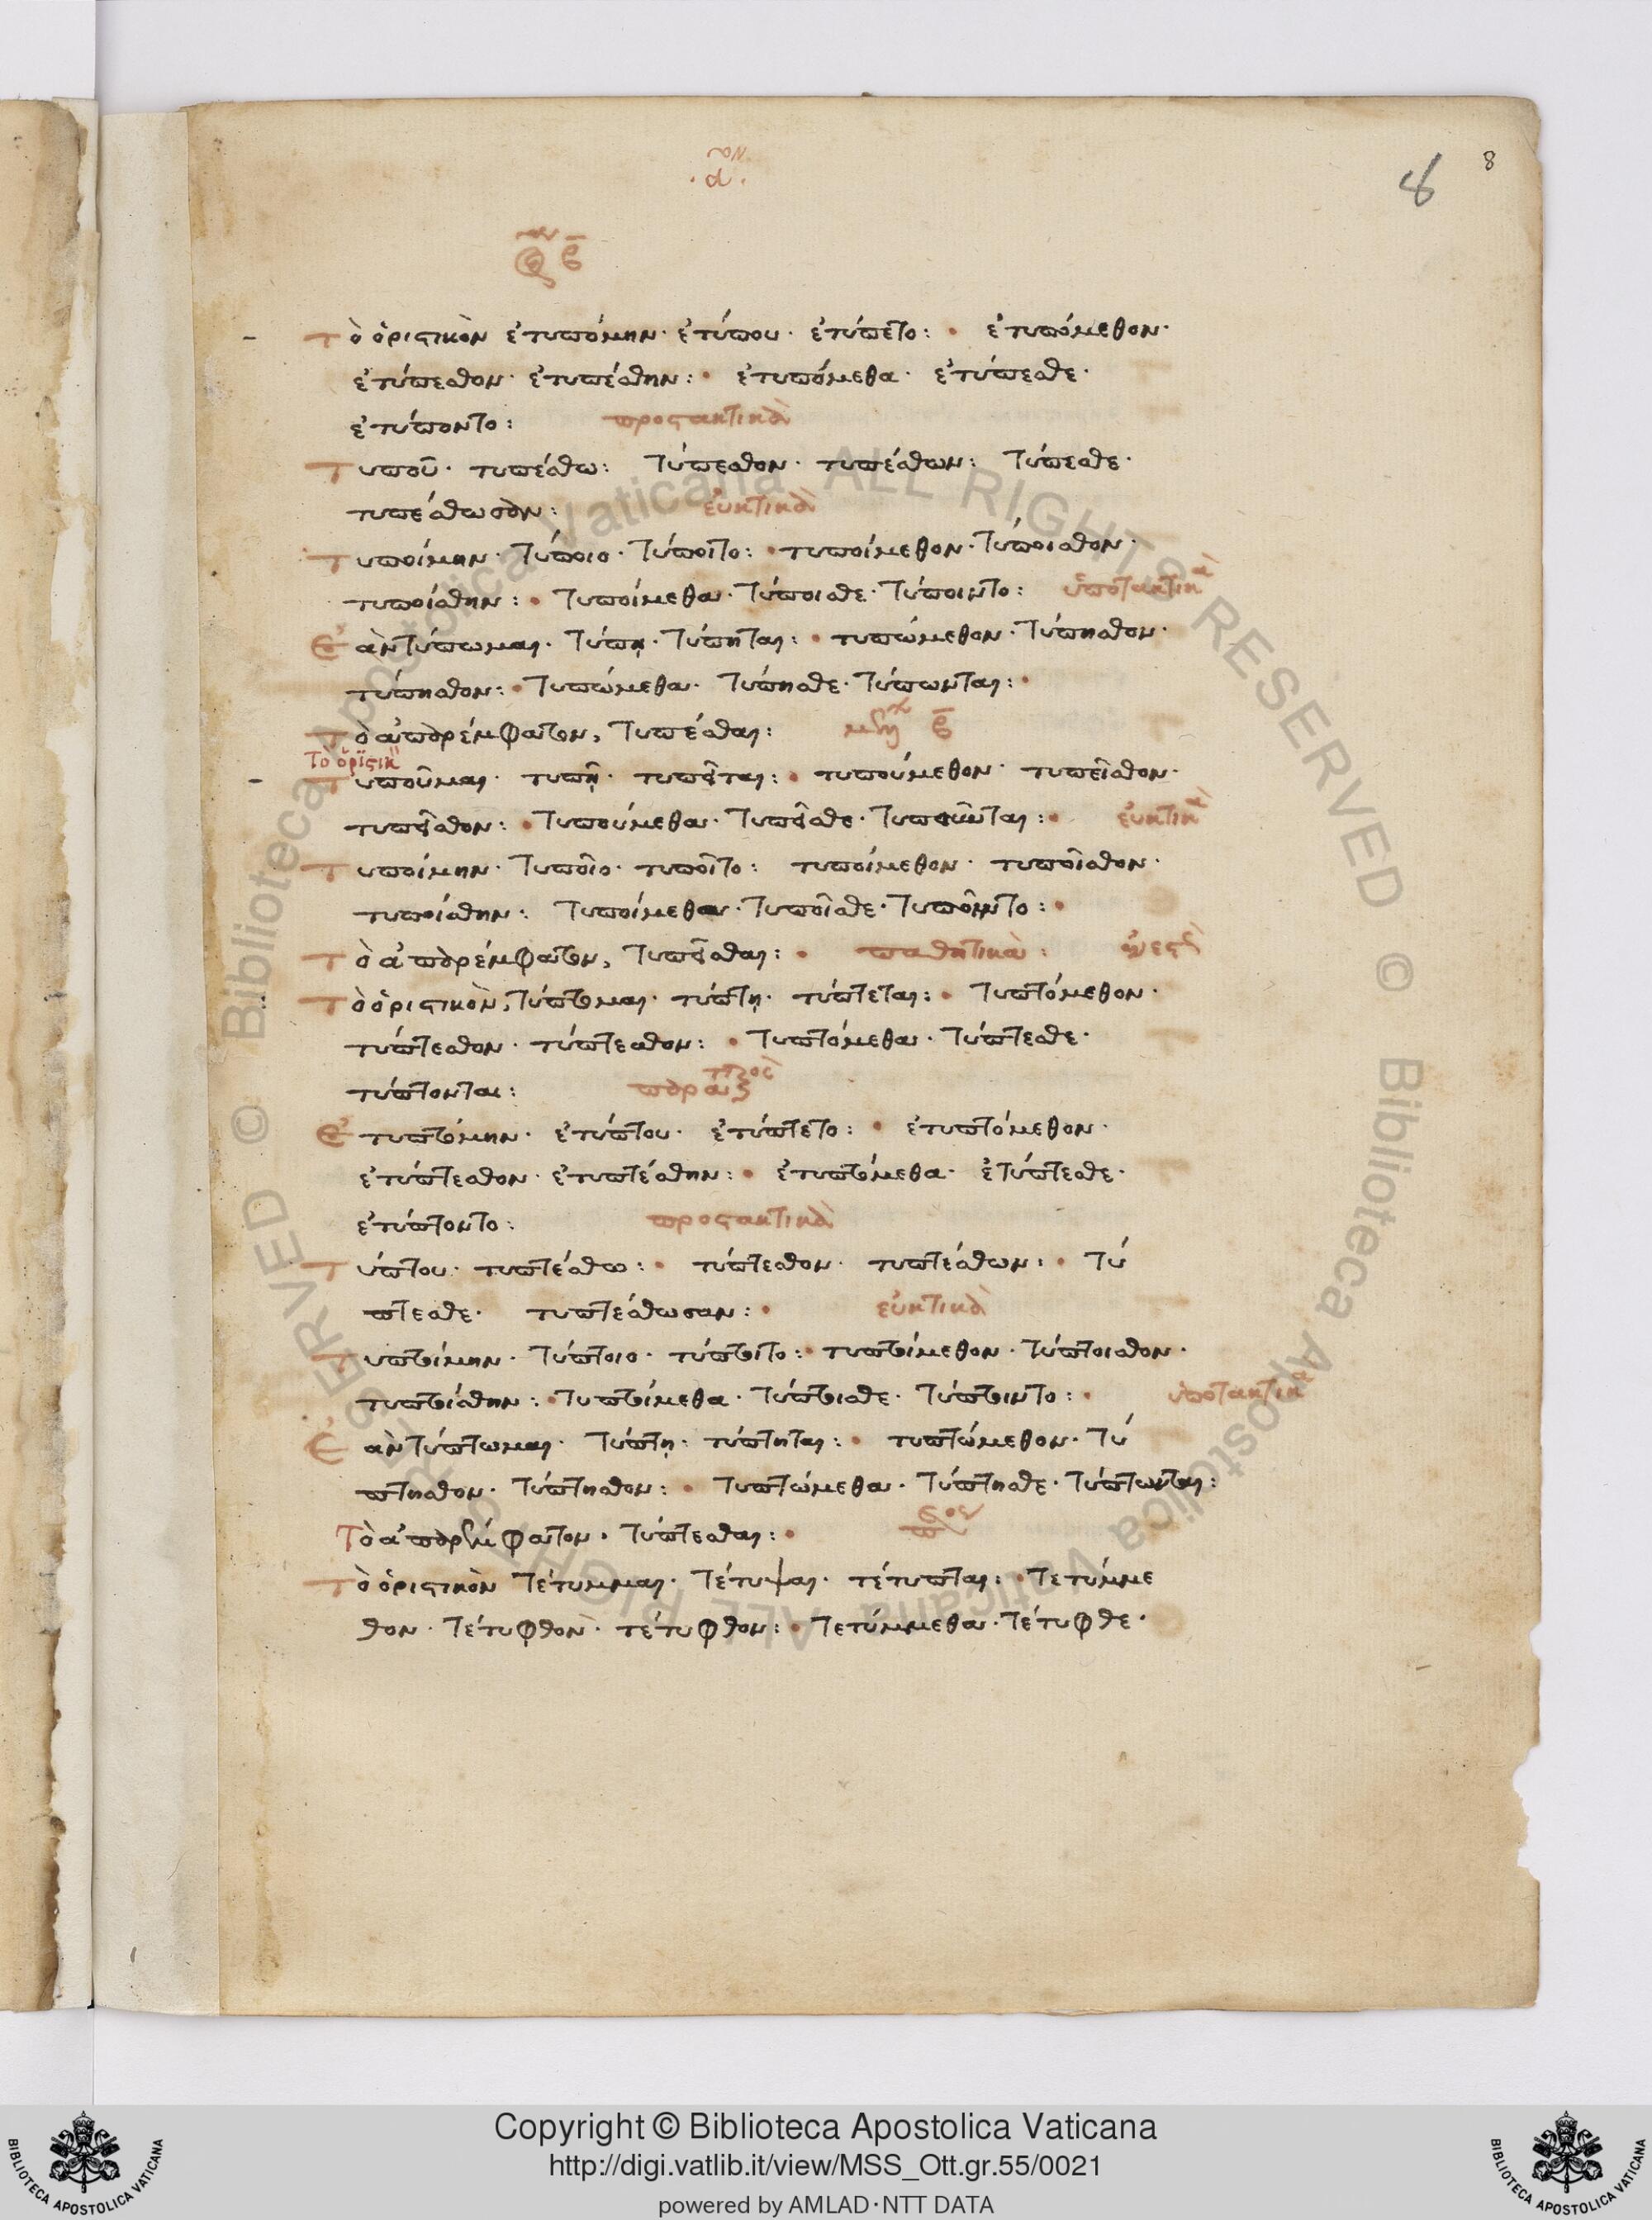 .α.
8 8
Τὸ ὁριστικὸν ἐτυπόμην· ἐτύπου· ἐτύπετο: • ἐτυπόμεθον·
ἐτύπεσθον· ἐτυπέσθην: • ἐτυπόμεθα· ἐτύπεσθε·
ἐτύποντο: προστακτικὰ
Τυποῦ· τυπέσθω: τύπεσθον· τυπέσθων: τύπεσθε·
τυπέσθωσαν: εὐκτικὰ
Τυποίμην· τύποιο· τύποιτο: • τυποίμεθον· τύποισθον·
τυποίσθην: • τυποίμεθα· τύποισθε· τύποιντο: ὑποτακτικὰ
Ἐὰν τύπωμαι· τύπῃ· τύπηται: • τυπώμεθον· τύπησθον·
τύπησθον: • τυπώμεθα· τύπησθε· τύπωνται: •
Τὸ ἀπαρέμφατον, τυπέσθαι: β
Τὸ ὁριστικ
Τυποῦμαι· τυπῇ· τυπεῖται: • τυπούμεθον· τυπεῖσθον·
τυπεῖσθον: • τυπούμεθα· τυπεῖσθε· τυποῦνται: • εὐκτικὰ
Τυποίμην· τυποῖο· τυποῖτο: τυποίμεθον· τυποῖσθον·
τυποίσθην: τυποίμεθα· τυποῖσθε· τυποῖντο: •
Τὸ ἀπαρέμφατον, τυπεῖσθαι: • παθητικὰ:
Τὸ ὁριστικὸν, τύπτομαι· τύπτῃ· τύπτεται: • τυπτόμεθον·
τύπτεσθον· τύπτεσθον: • τυπτόμεθα· τύπτεσθε·
τύπτονται:
Ἐτυπτόμην· ἐτύπτου· ἐτύπτετο: • ἐτυπτόμεθον·
ἐτύπτεσθον· ἐτυπτέσθην: • ἐτυπτόμεθα· ἐτύπτεσθε·
ἐτύπτοντο: προστακτικὰ
Τύπτου· τυπτέσθω: • τύπτεσθον· τυπτέσθων: • τύ
πτεσθε· τυπτέσθωσαν: • εὐκτικὰ
Τυπτοίμην· τύπτοιο· τύπτοιτο: • τυπτοίμεθον· τύπτοισθον·
τυπτοίσθην: • τυπτοίμεθα· τύπτοισθε· τύπτοιντο: • ὑποτακτικὰ
Ἐὰν τύπτωμαι· τύπτῃ: τύπτηται: • τυπτώμεθον· τύ
πτησθον· τύπτησθον: • τυπτώμεθα· τύπτησθε· τύπτωνται:
Τὸ ἀπαρέμφατον· τύπτεσθαι: •
Τὸ ὁριστικὸν τέτυμμαι· τέτυψαι· τέτυπται: • τετύμμε
θον· τέτυφθον· τέτυφθον: • τετύμμεθα· τέτυφθε·
Copyright © Biblioteca Apostolica Vaticana
http://digi.vatlib.it/view/MSS_Ott.gr.55/0021
powered by AMLAD·NTT DATA